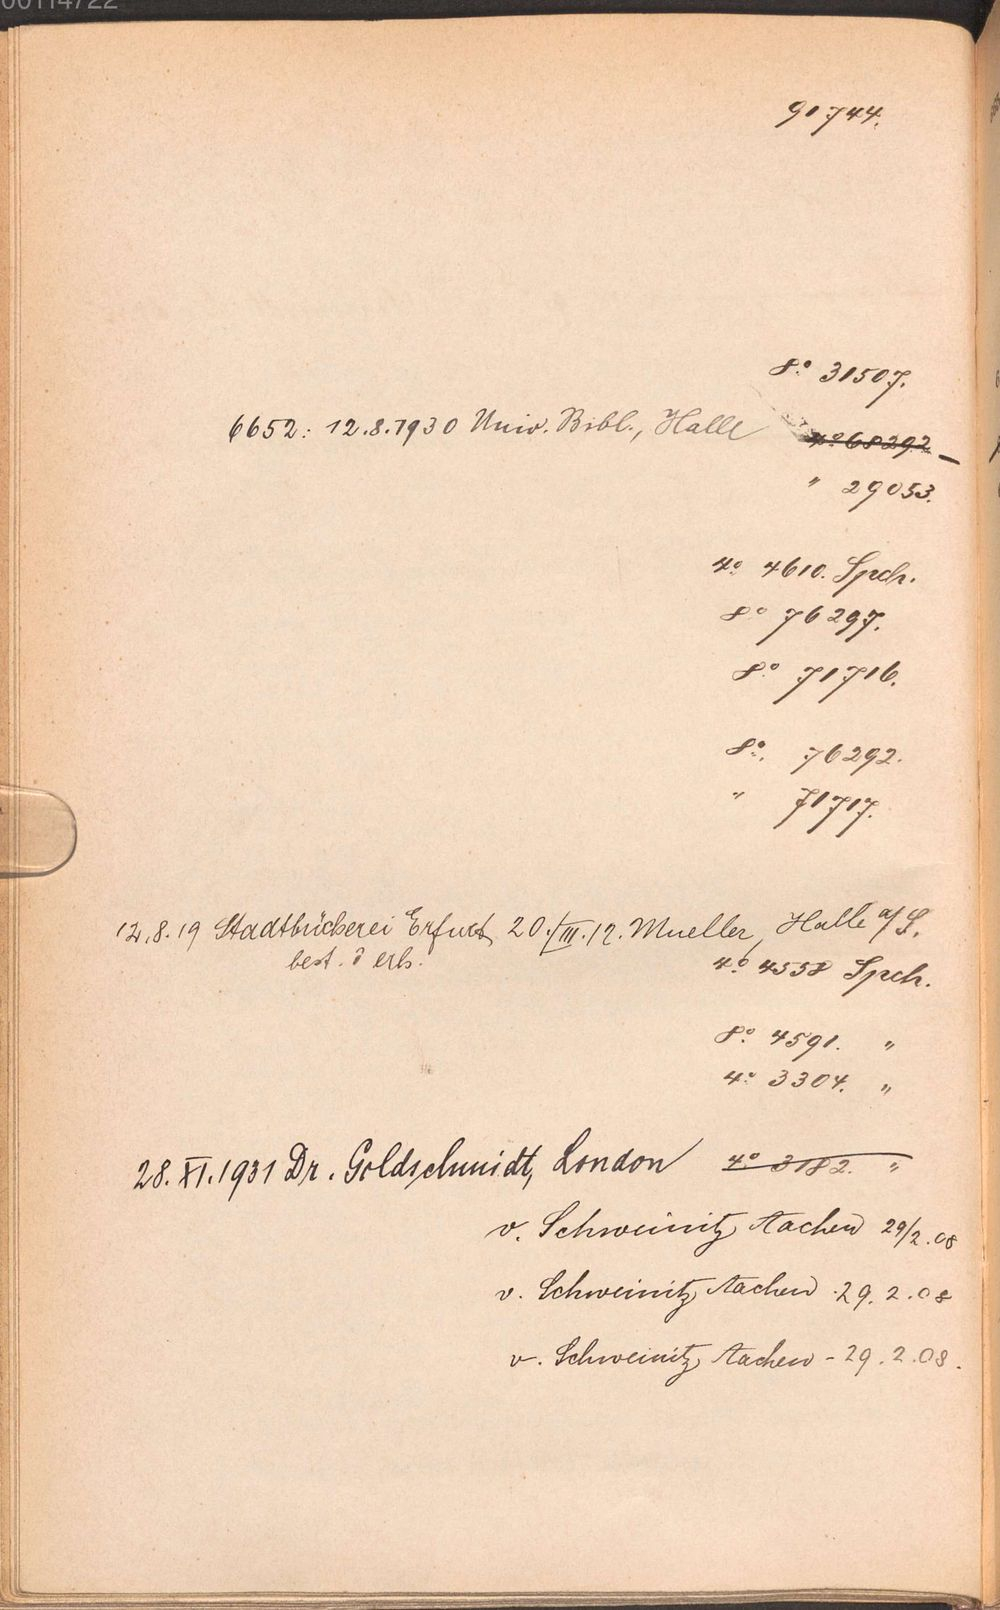 00114722
90744.
8° 31507.
6652: 12.8.1930 Univ. Bibl., Halle 4° 68292
" 29053.
4° 4610. Spch.
8° 76297.
8° 71716.
8° 76292.
" 71717.
12.8.19 Stadtbücherei Erfurt 20./III.12. Mueller, Halle a/S.
best. erb. 4° 4558 Spch.
8° 4591. "
4° 3304. "
28. XI. 1931 Dr. Goldschmidt, London 4° 3182. "
v. Schweinitz, Aachen 29/2.08
v. Schweinitz, Aachen 29.2.08
v. Schweinitz, Aachen - 29.2.08.